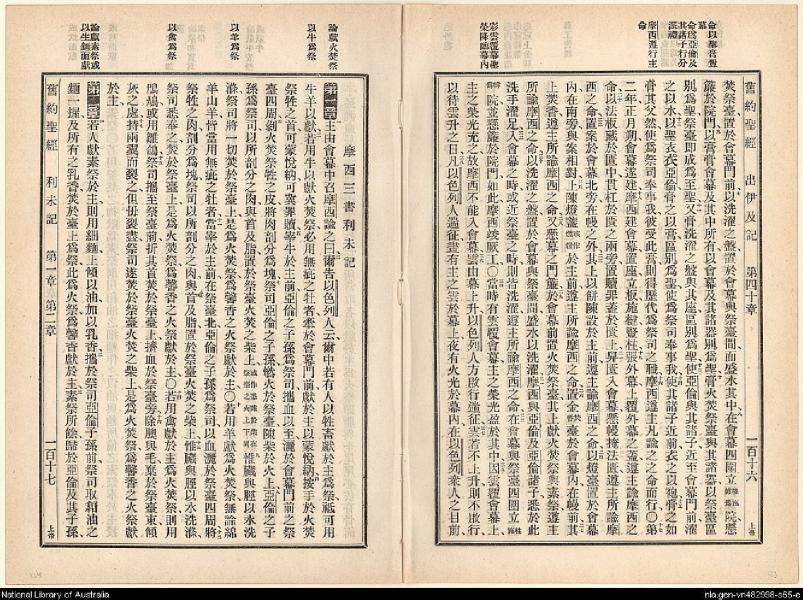 舊約聖經 出伊及記 第四十章 一百十六 上卷
摩西遵行主命
彩雲覆幕主榮降臨幕內
焚祭臺置於會幕門前以洗濯之盤置於會幕與祭臺間而盛水其中在會幕四圍立院懸
簾於院門以膏膏會幕及其中所有以會幕及其諸器別為聖膏火焚祭臺與其諸器以祭臺區
別為聖祭臺即成為至聖又膏洗濯之盤與其座區別為聖使亞倫與其諸子近至會幕門前濯
之以水以聖衣衣亞倫膏之以膏區別為聖使為祭司奉事我使其諸子近前衣之以袍膏之如
膏其父然使為祭司奉事我彼受此膏則得歷代為祭司之職摩西遵主凡諭之之命而行〇第
二年正月朔會幕遂建摩西建會幕置座立板施楗豎柱張外幕上覆外幕之蓋遵主諭摩西之
命以法板藏於匱中貫杠於匱之兩旁置贖罪蓋於匱上舁匱入會幕懸幔掩法匱遵主所諭摩
西之命置案於會幕北旁在幔之外其上以餅陳設於主前遵主諭摩西之命以燈臺置於會幕
內在南旁與案相對上陳燈盞於主前遵主所諭摩西之命置金臺於會幕內在幔前其
上焚香遵主所諭摩西之命又懸幕之門簾於會幕前置火焚祭臺其上獻火焚祭與素祭遵主
所諭摩西之命以洗濯之盤置於會幕與祭臺間盛水以洗濯摩西與亞倫及亞倫諸子悉於此
洗手濯足入會幕之時或近祭臺之時則皆洗濯遵主所諭摩西之命在會幕與祭臺四圍立
院並懸簾於院門如此摩西竣厥工〇當時有雲覆會幕主之榮光盈於其中因雲覆會幕上
主之榮光充之故摩西不能入會幕雲由幕上升以色列人方啟行遄征雲若不上升則不啟行
以待雲升之日凡以色列人遄征晝有主之雲於幕上夜有火光於幕內在以色列衆人之目前
論獻火焚祭
以牛為祭
以羊為祭
以禽為祭
論獻素祭
摩西三書利未記
第一章 主由會幕中召摩西諭之曰爾告以色列人云爾中若有人以牲畜獻於主為祭祗可用
牛羊以獻若用牛以獻火焚祭必用無疵之牡者牽於會幕門前獻於主以蒙悅納按手於火焚
祭牲之首可蒙悅納可冀罪贖宰牛於主前亞倫之子孫為祭司攜血以至灑於會幕門前之祭
臺四周剝火焚祭牲之皮將肉剖分為塊祭司亞倫之子孫爇火於祭臺陳柴於火上亞倫之子
孫為祭司以所剖分之肉與首及脂置於祭臺火之柴上惟臟與脛以水洗
滌祭司將一切焚於祭臺上是為火焚祭為馨香之火祭獻於主〇若用羊獻為火焚祭無論綿
羊山羊皆當用無疵之牡者當宰於主前在祭臺北亞倫之子孫為祭司以血灑於祭臺四周將
祭牲之肉剖分為塊祭司以所剖分之肉與首及脂置於祭臺火之柴上惟臟與脛以水洗滌
祭司悉奉之焚於祭臺上是為火焚祭為馨香之火祭獻於主〇若用禽獻於主為火焚祭則用
鳲鳩或用雛鴿祭司攜至祭臺前折其首焚於祭臺上擠血於祭臺旁除膆與毛棄於祭臺東傾
灰之處持兩翼而裂之但毋裂斷祭司遂焚於祭臺火之柴上是為火焚祭為馨香之火祭獻
於主
第二章 若人獻素祭於主則用細麵上傾以油加以乳香攜於祭司亞倫子孫前祭司取和油之
麵一握及所有之乳香焚於祭臺上為祭此為火祭為馨香獻於主素祭所餘歸於亞倫及其子孫
舊約聖經 利未記 第一章 第二章 一百十七 上卷
National Library of Australia
nla.gen-vn482998-s65-e